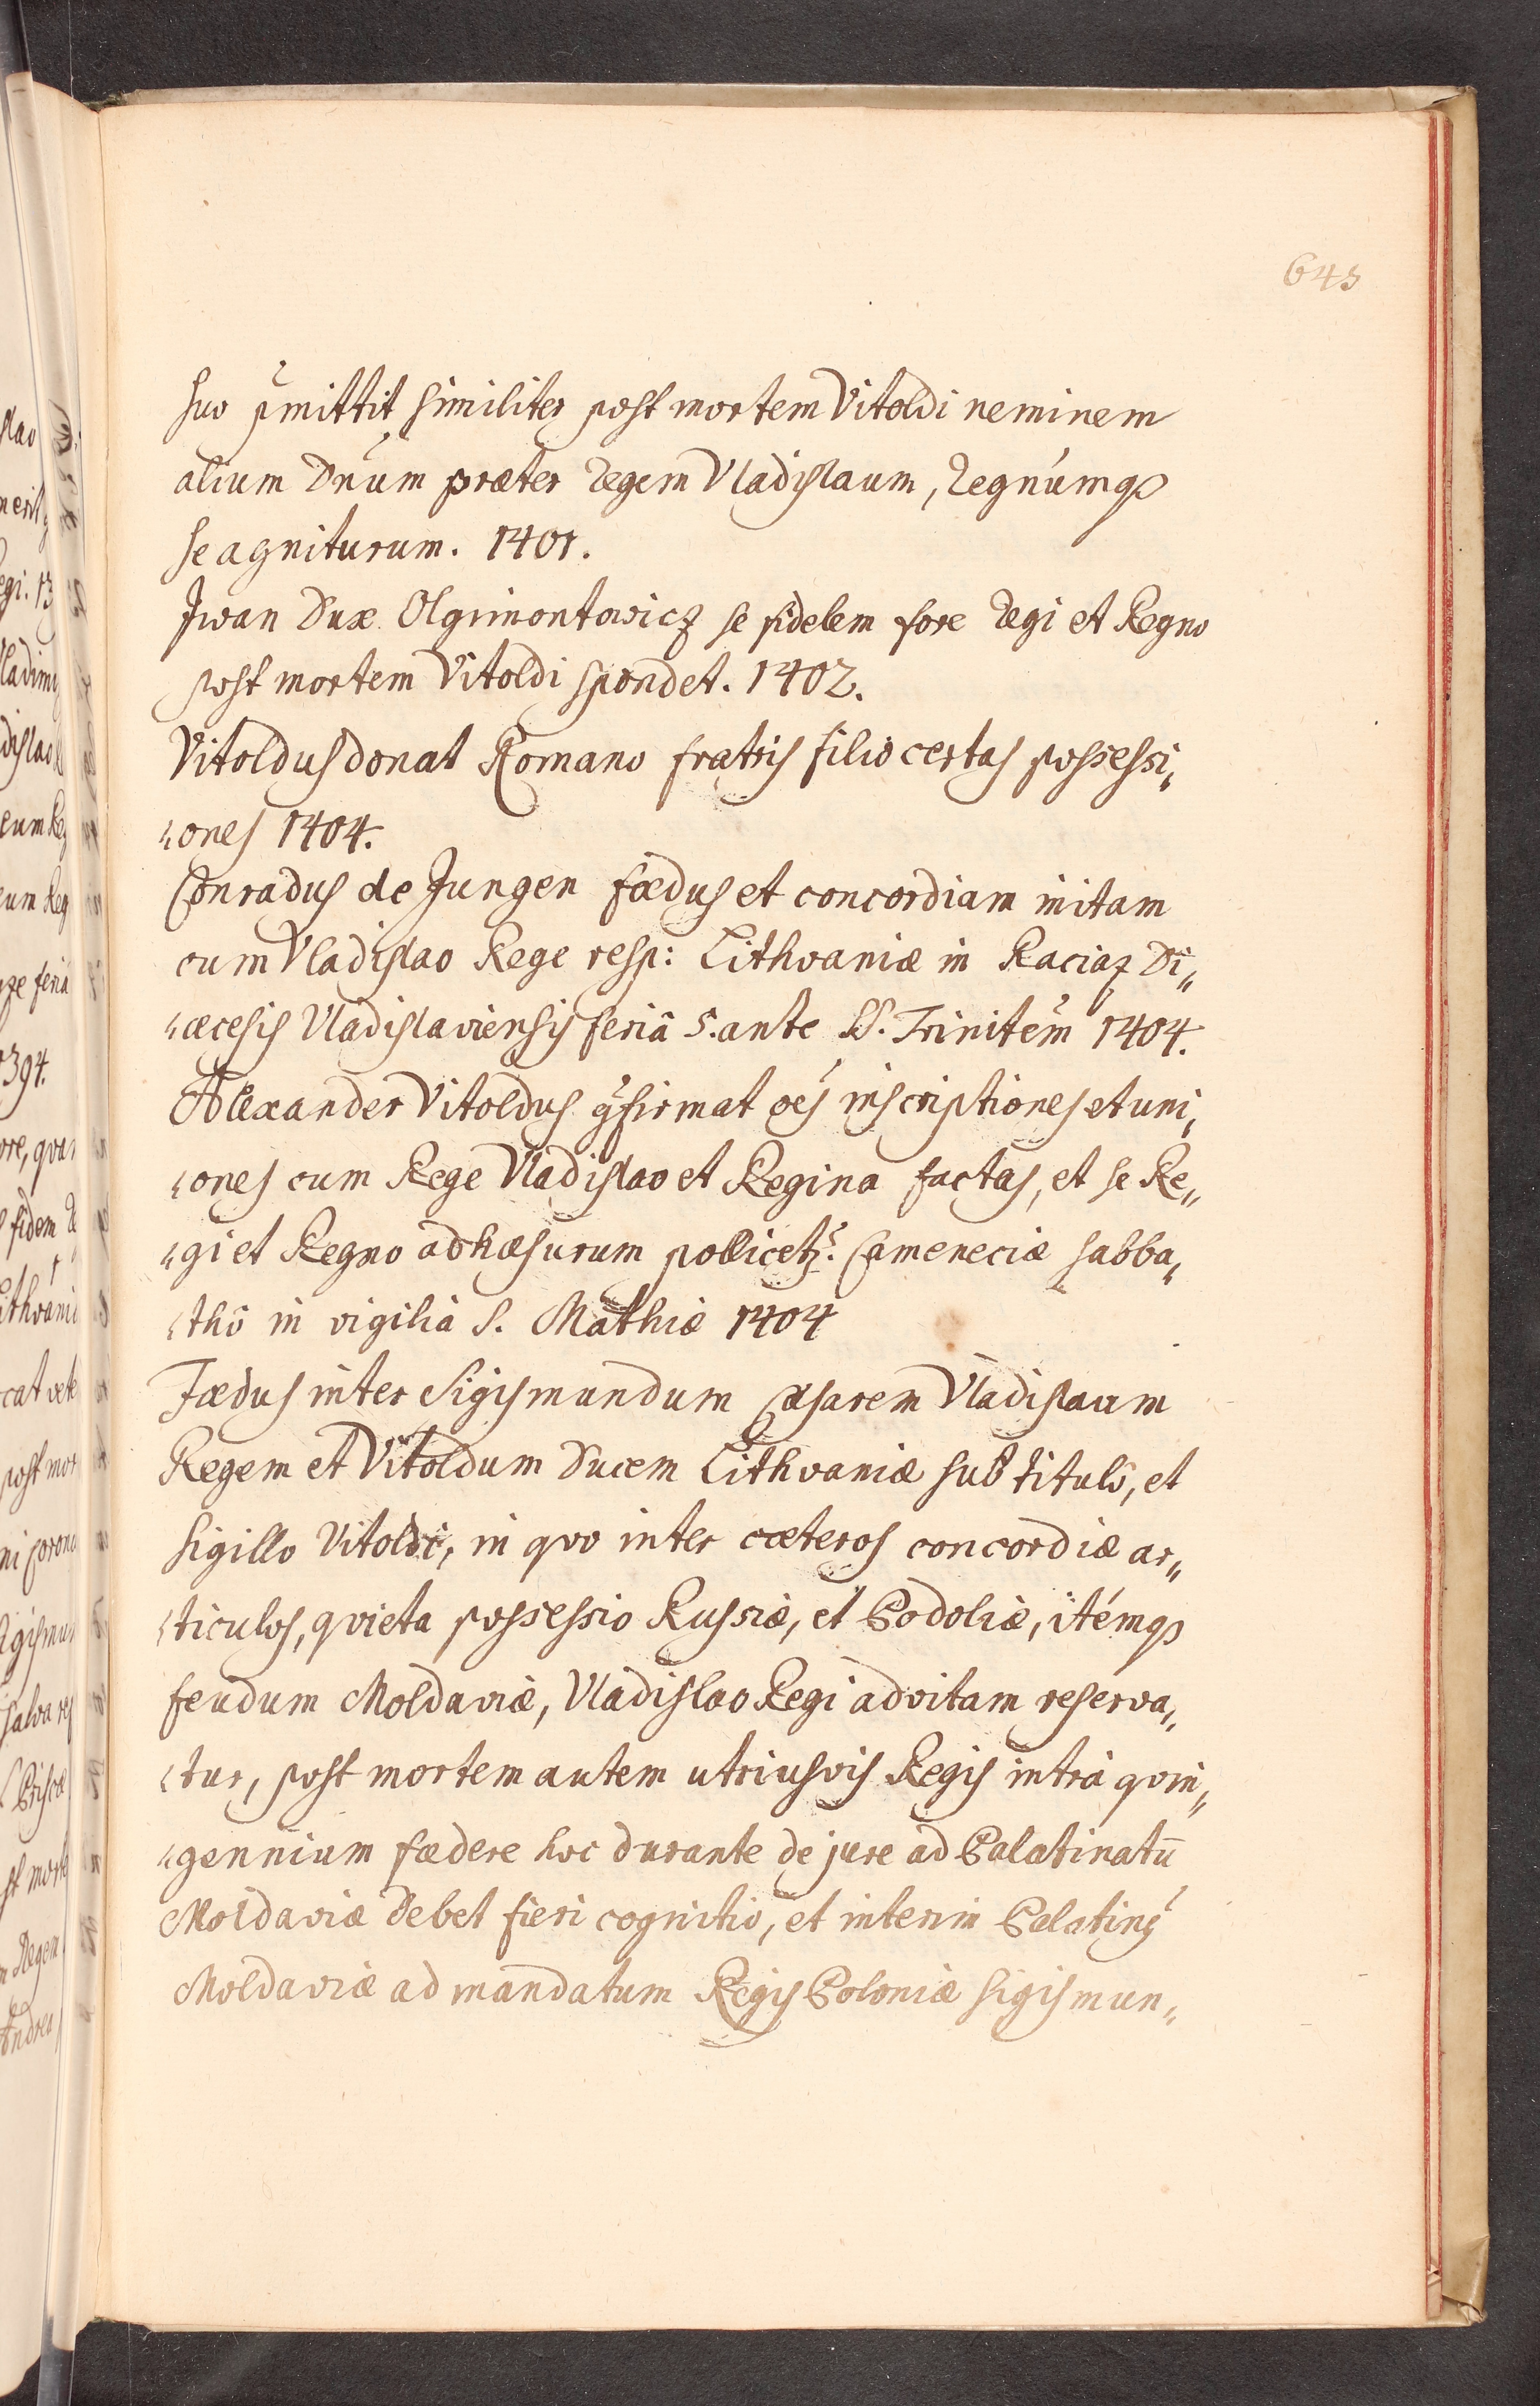 643
suo p̃mittit similiter post mortem Vitoldi neminem
alium Dnum præter Regem Vladislaum, Regnúmqꝫ
se agniturum. 1401.
Jwan Dux Olgimontowicz se fidelem fore Regi et Regno
post mortem Vitoldi spondet. 1402.
Vitoldus donat Romano fratris filio certas possessi„
„ones 1404.
Conradus de Jungen fædus et concordiam initam
cum Vladislao Rege resp: Lithvaniæ in Raciaz Di„
„æcesis Vladislaviensis feriâ 5. ante SS. Trinitẽm 1404.
Alexander Vitoldus ꝯfirmat oẽs inscriptiones et uni„
„ones cum Rege Vladislao et Regina factas, et se Re„
„gi et Regno adhæsurum pollicetr̃. Cameneciæ sabba„
„thô in vigilia S. Mathiæ 1404
Fædus inter Sigismundum Cæsarem Vladislaum
Regem et Vitoldum Ducem Lithvaniæ sub titulô, et
Sigillo Vitoldi, in qvo inter cæteros concordiæ ar„
„ticulos, qvieta possessio Russiæ, et Podoliæ, itémqꝫ
feudum Moldaviæ, Vladislao Regi ad vitam reserva„
„tur, post mortem autem utriusvis Regis intra qvin„
„gennium fædere hoc durante de jure ad Palatinatū
Moldaviæ debet fieri cognitio, et interim Palatinꝰ
Moldaviæ ad mandatum Regis Poloniæ Sigismun„